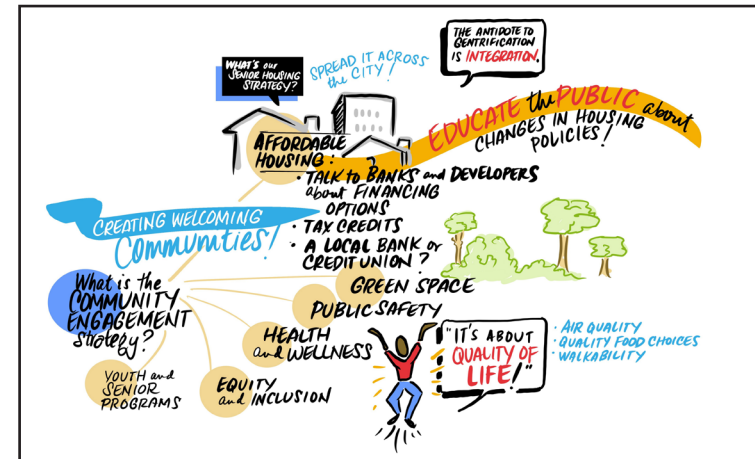 WHAT'S our
SENIOR HOUSING
STRATEGY?
SPREAD IT ACROSS
the CITY!
THE ANTIDOTE TO
GENTRIFICATION
IS INTEGRATION.
EDUCATE the PUBLIC about
CHANGES IN HOUSING
POLICIES!
AFFORDABLE
HOUSING:
• TALK to BANKS and DEVELOPERS
about FINANCING
OPTIONS
• TAX CREDITS
• A LOCAL BANK or
CREDIT UNION?
CREATING WELCOMING
COMMUNITIES!
What is the
COMMUNITY
ENGAGEMENT
strategy?
GREEN SPACE
PUBLIC SAFETY
HEALTH
and WELLNESS
EQUITY
and INCLUSION
YOUTH and
SENIOR
PROGRAMS
"IT'S ABOUT
QUALITY OF
LIFE!"
• AIR QUALITY
• QUALITY FOOD CHOICES
• WALKABILITY